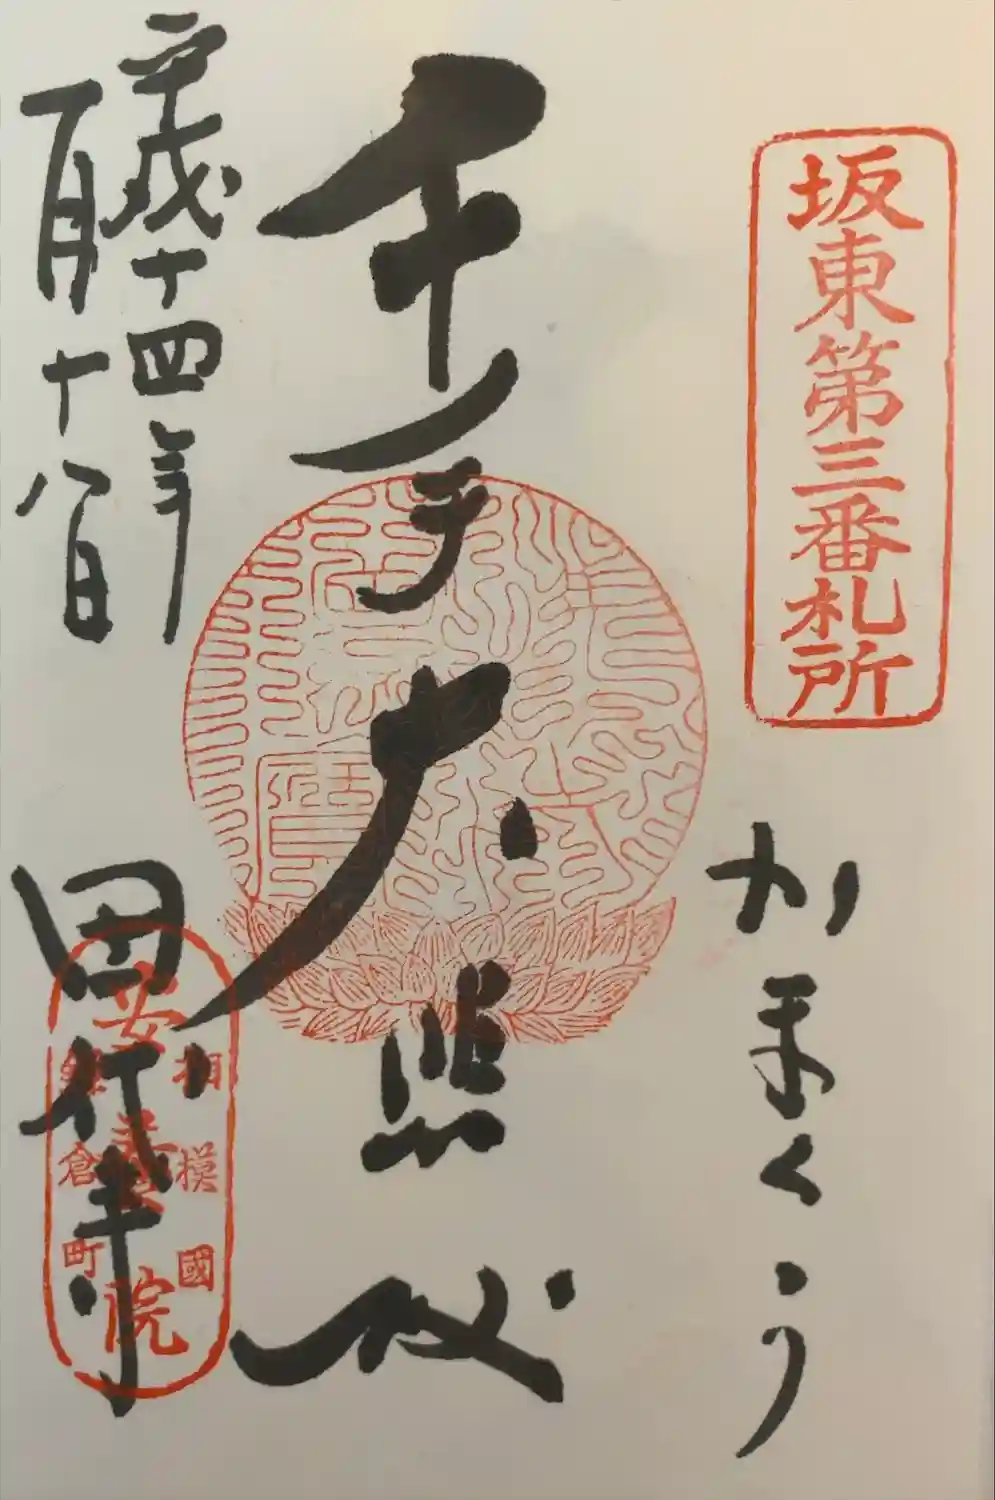 坂東第三番札所
かまくら
千手大悲殿
平成十四年
百十八日
田代寺
安養院
相模國
鎌倉町